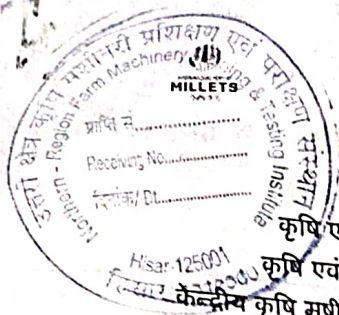 उत्तरी क्षेत्र कृषि मशीनरी प्रशिक्षण एवं परीक्षण संस्थान
Northern - Region Farm Machinery Training & Testing Institute
MILLETS
प्राप्ति सं.
Receiving No.
दिनांक/ Dt.
Hisar-125001
हिसार
कृषि ए
कृषि एवं
केन्द्रीय कृषि मशी